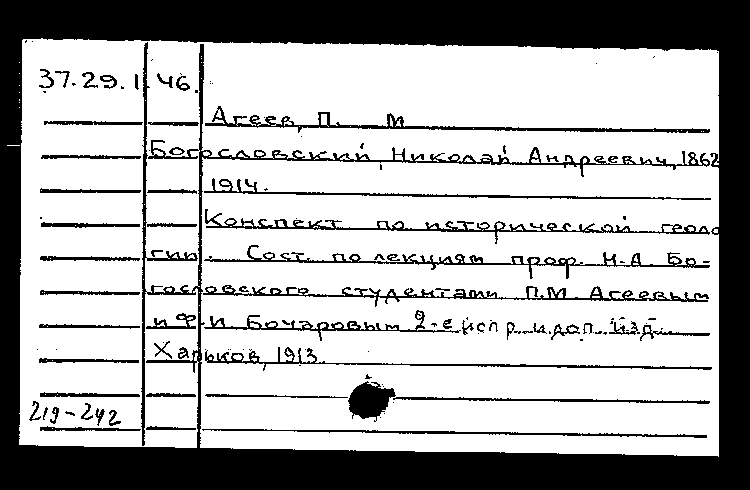 37.29.1.46.
Агеев, П. М
Богословский, Николай Андреевич, 1862
1914.
Конспект по исторической геоло
гии. Сост. по лекциям проф. Н.А. Бо-
гословского студентами П.М. Агеевым
и Ф.И. Бочаровым 2-е испр. и доп. изд.
Харьков, 1913.
219-242